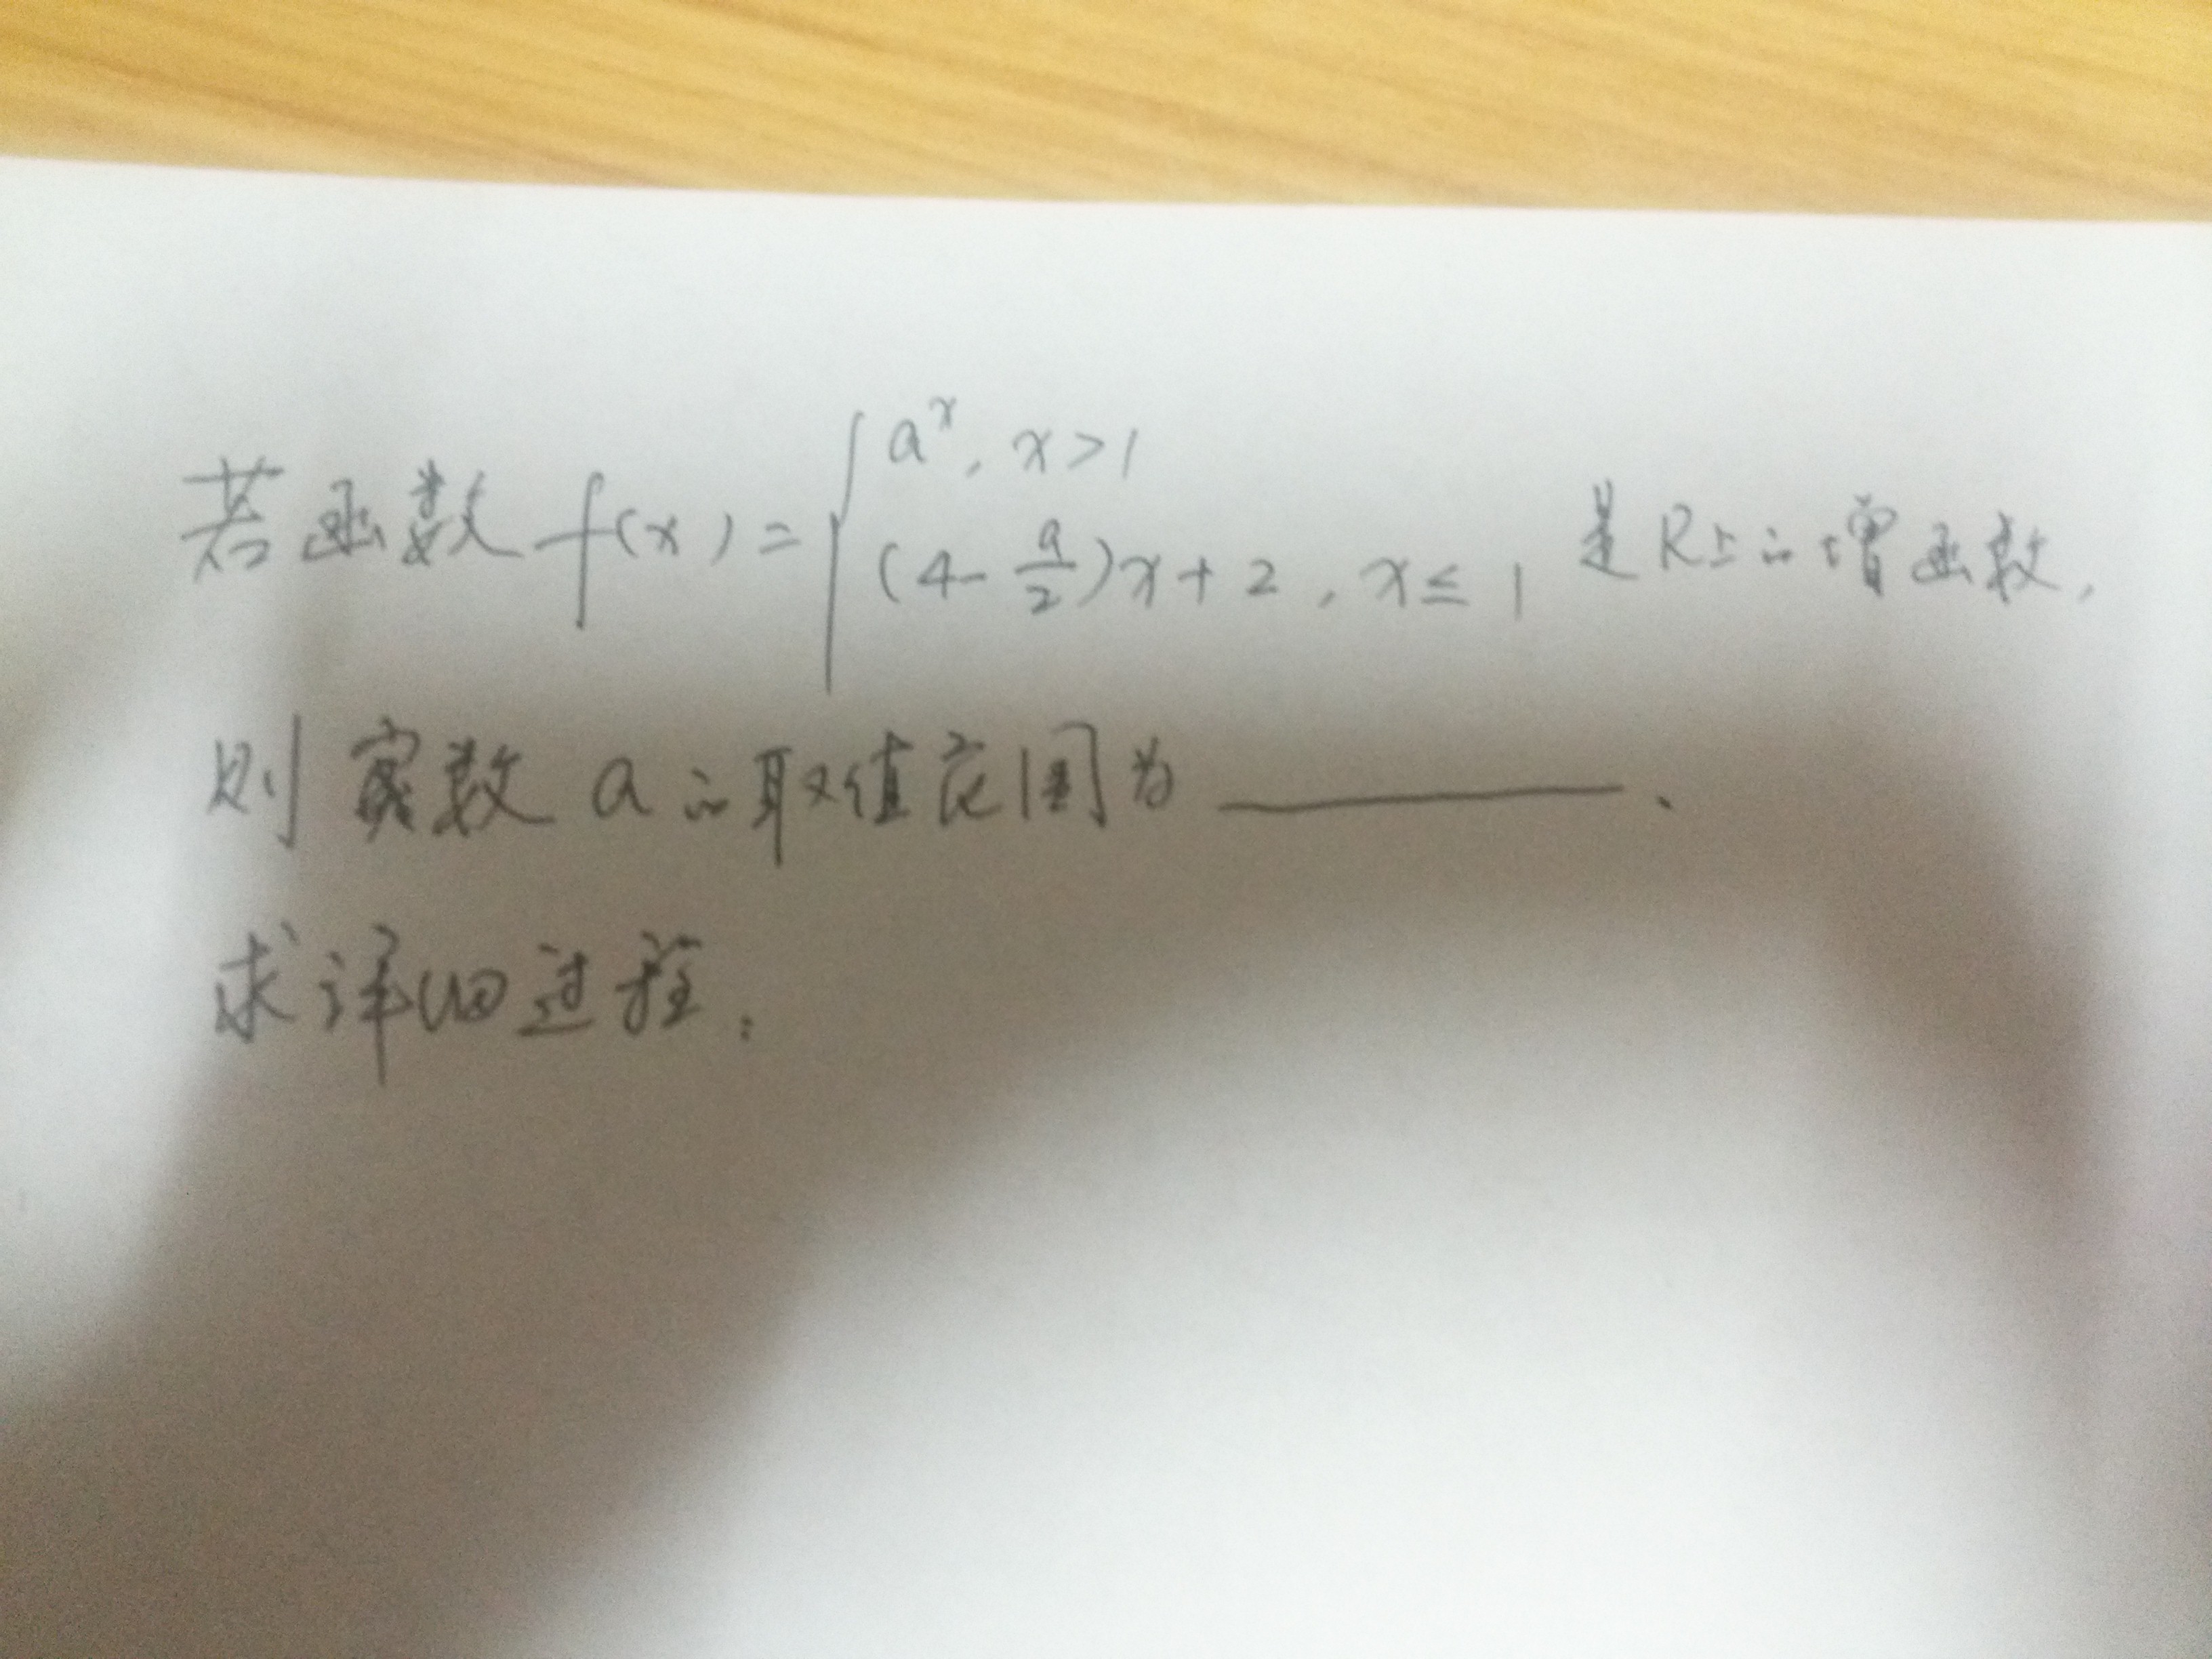 若函数 f(x) = { a^x, x>1
(4-a/2)x+2, x≤1 是R上的增函数,
则实数 a 的取值范围为 ________.
求详细过程.